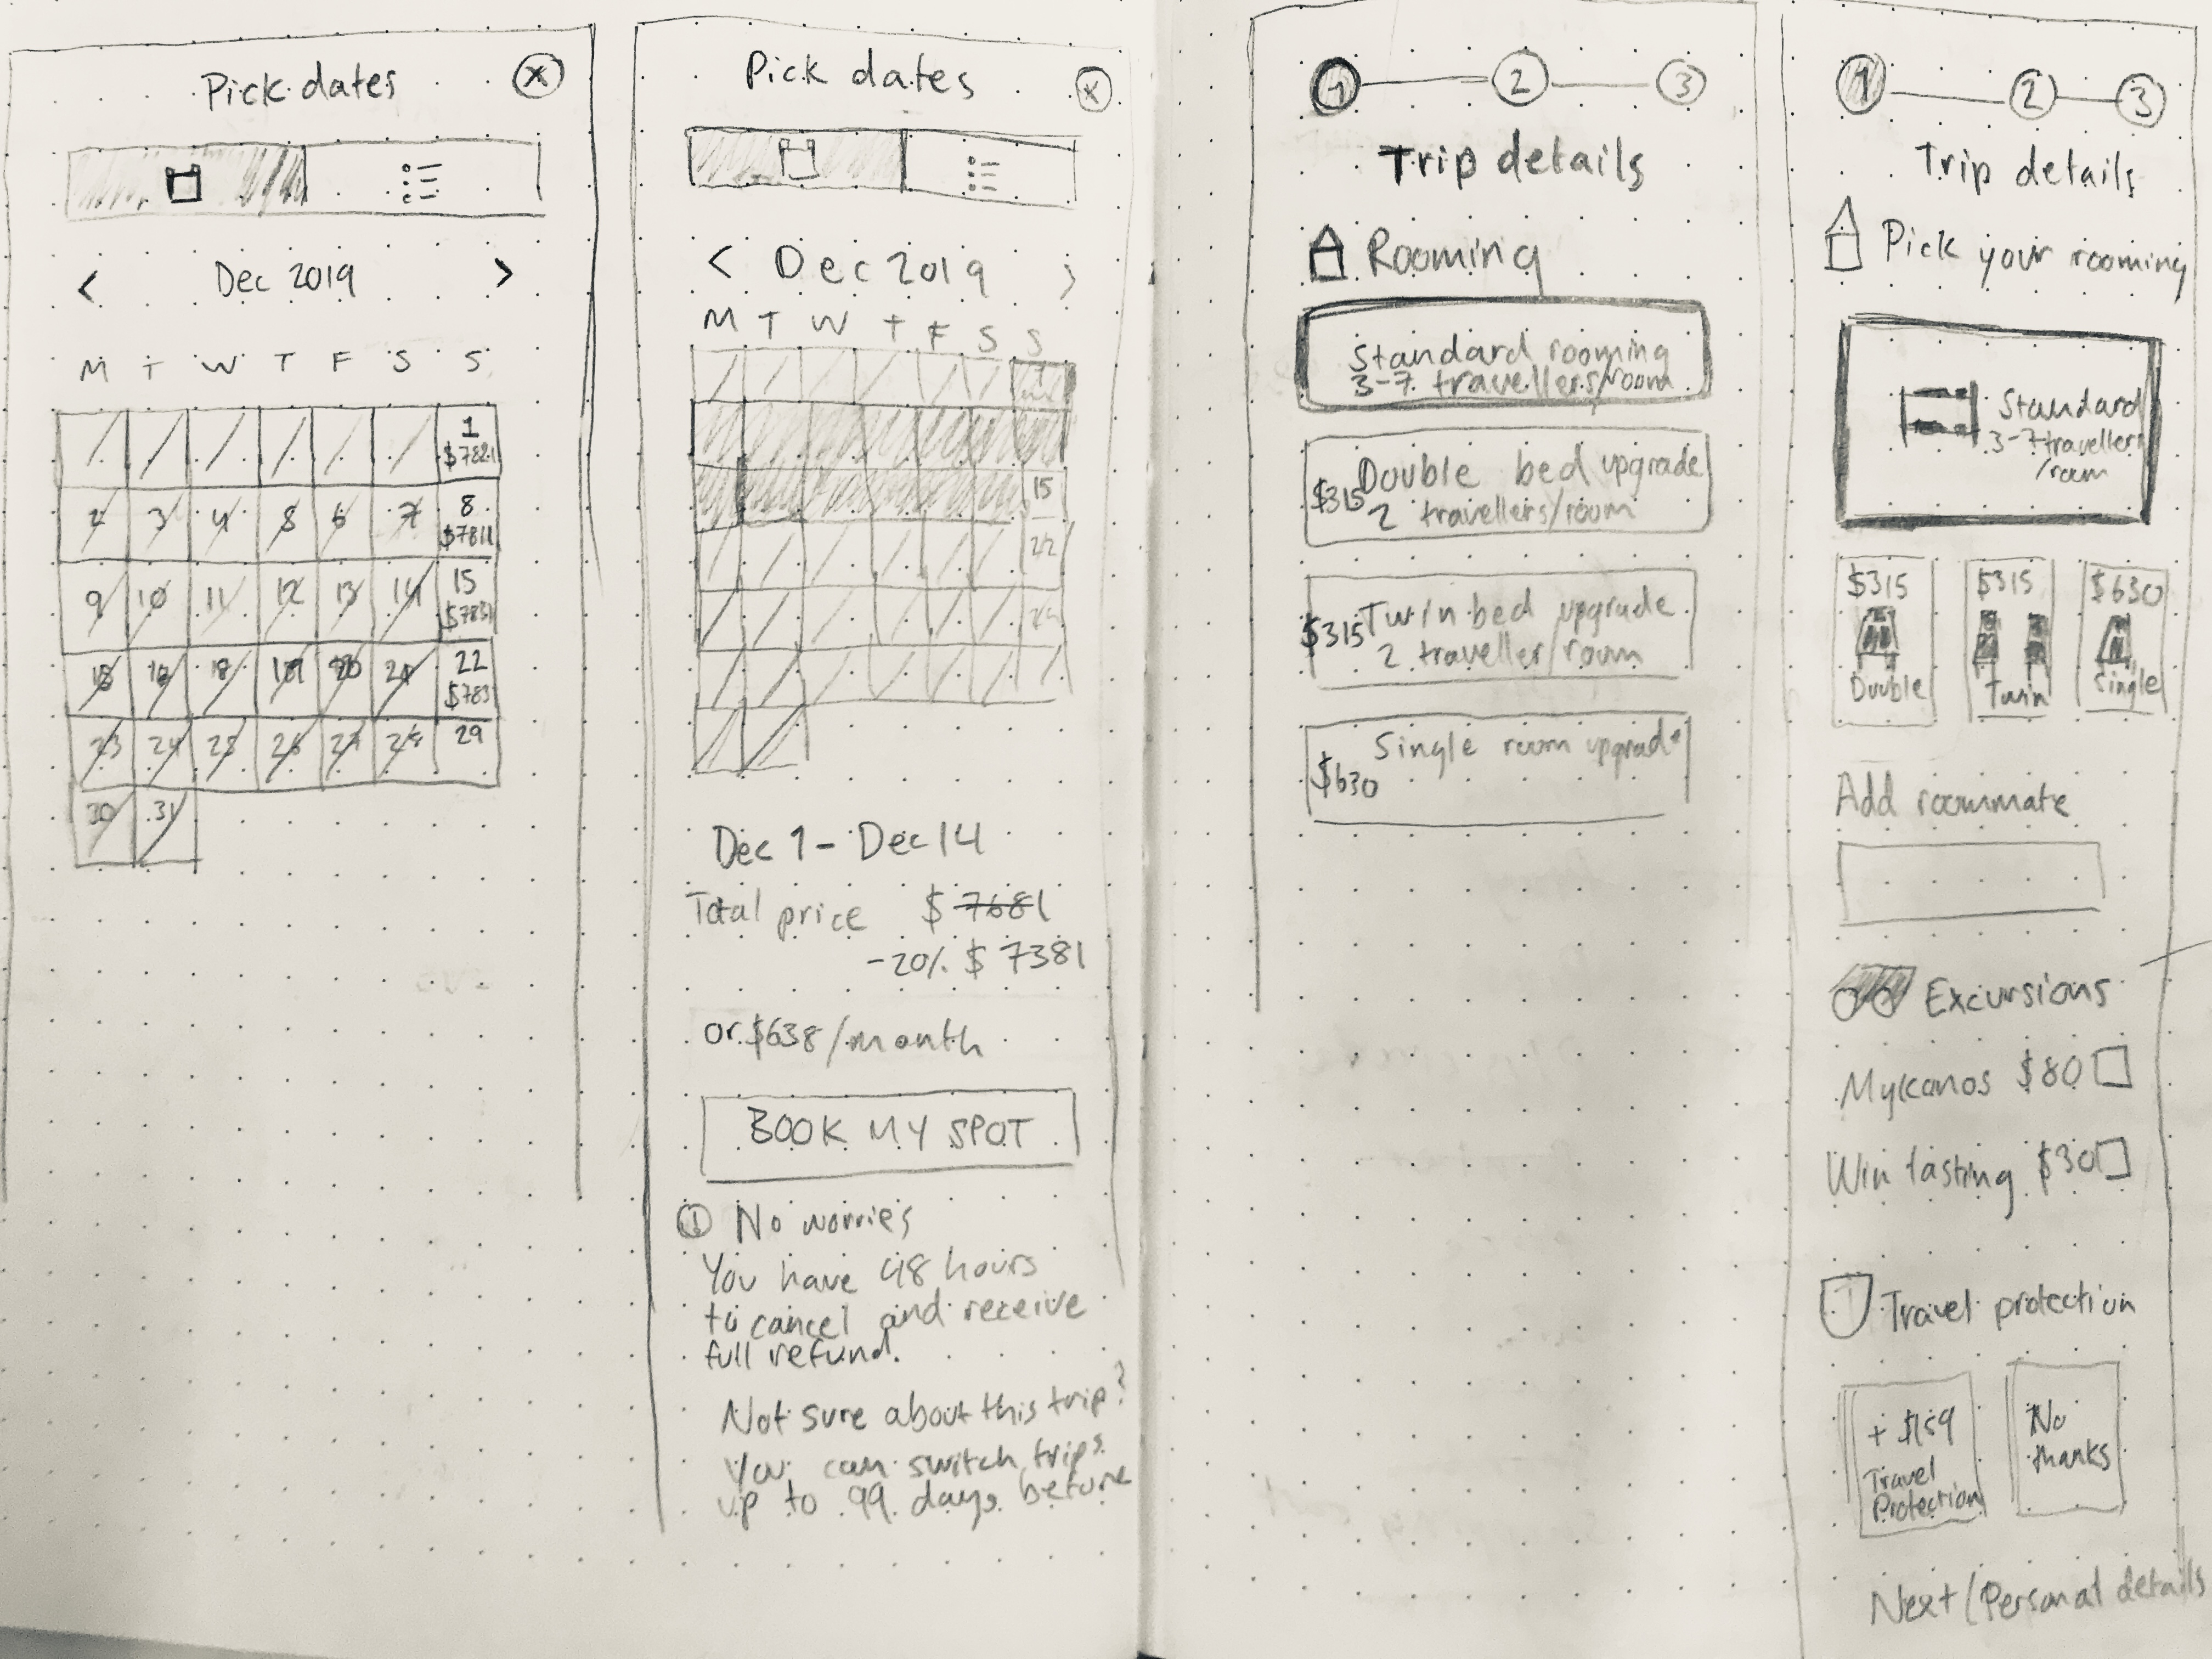 Pick dates X
< Dec 2019 >
M T W T F S S
1
$7821
2 3 4 5 6 7 8
$7811
9 10 11 12 13 14 15
$7831
18 19 20 21 22
$783
23 24 25 26 27 28 29
30 31
Pick dates X
< Dec 2019 >
M T W T F S S
1
15
22
Dec 1 - Dec 14
Total price $ 7681
-20% $ 7381
or $638/month
BOOK MY SPOT
No worries
You have 48 hours
to cancel and receive
full refund.
Not sure about this trip?
You can switch trips
up to 99 days before
1 2 3
Trip details
Rooming
Standard rooming
3-7 travellers/room
Double bed upgrade
$315
2 travellers/room
Twin bed upgrade
$315
2 traveller/room
Single room upgrade
$630
1 2 3
Trip details
Pick your rooming
Standard
3-7 travellers
/room
$315 $315 $630
Double Twin Single
Add roommate
Excursions
Mykonos $80
Win tasting $30
Travel protection
+ $159
Travel
Protection
No
thanks
Next (Personal details